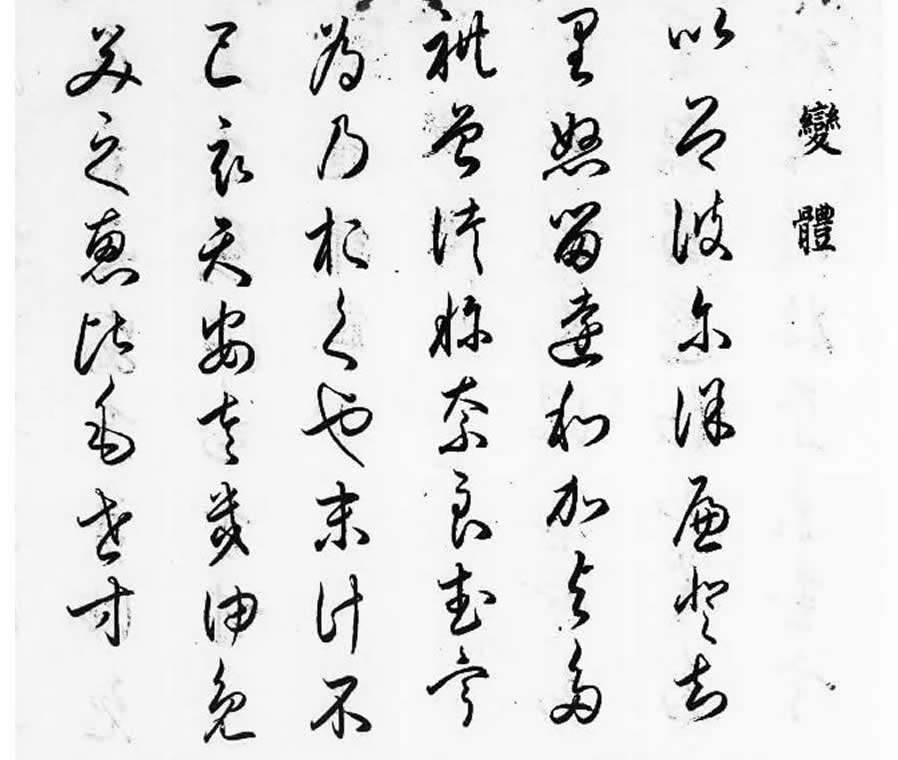 變體
以呂波尓保登知
里怒留遠和加与多
曽津祢奈良武宇
為乃於久也末計不
己衣天安左幾由免
美之恵比毛世寸